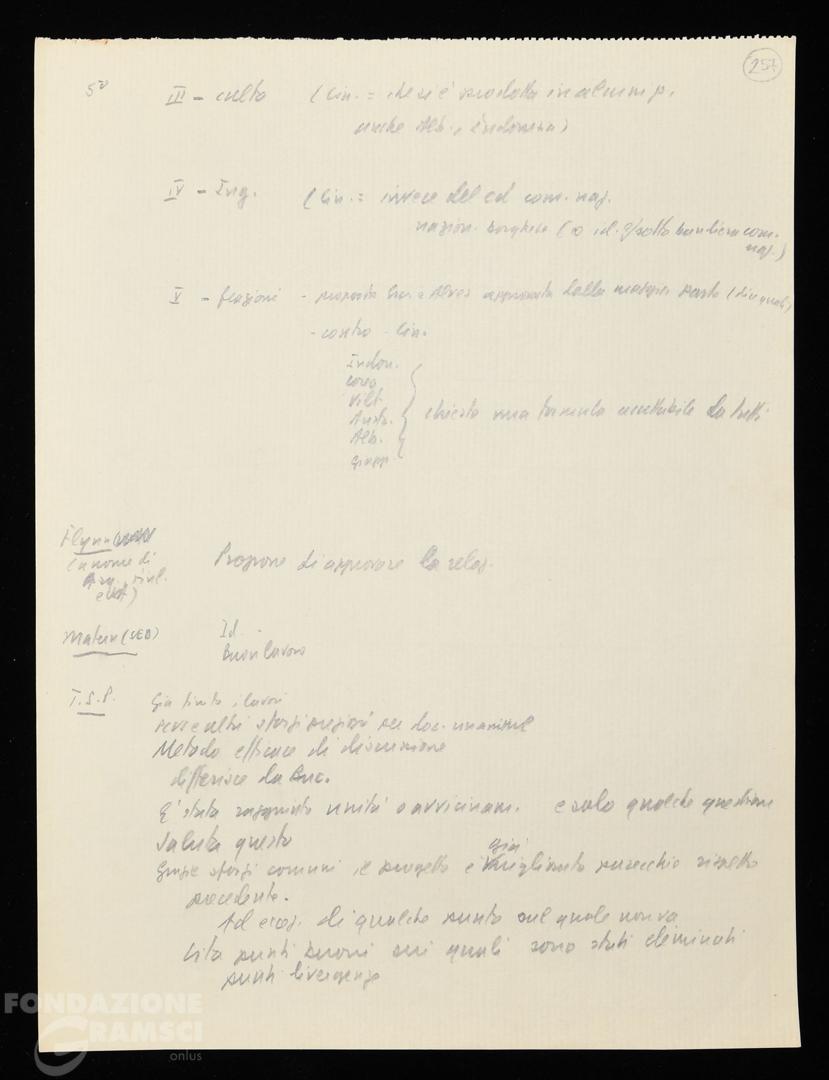 257
5º III - culto (Cin. = che si è prodotto in alcuni p.
anche Alb., Indonesia)
IV - Iug. (Cin. = invece del cd com. naz.
nazion. borghese (o id. sotto bandiera com.
naz.)
V - frazioni - proposta approvata dalla maggior parte (dire quali)
- contro - Cin.
Indon.
Corea
Viet.
Austr.
Alb.
Giapp.
chiesto una formula accettabile da tutti
Flynn
(a nome di
Arg.
e )
Propone di approvare la relaz.
Matern (SED)
Id.
Buon lavoro
T.S.P. Già finito i lavori
altri sforzi per doc. unanime
Metodo efficace di discussione
differisce da Buc.
E' stata raggiunta unità o avvicinam. e solo qualche questione
Saluta questo
Grazie sforzi comuni, il progetto è già migliorato parecchio rispetto
precedente.
Ad ecc. di qualche punto sul quale non va
Cita punti buoni sui quali sono stati eliminati
punti divergenza
FONDAZIONE
GRAMSCI
onlus